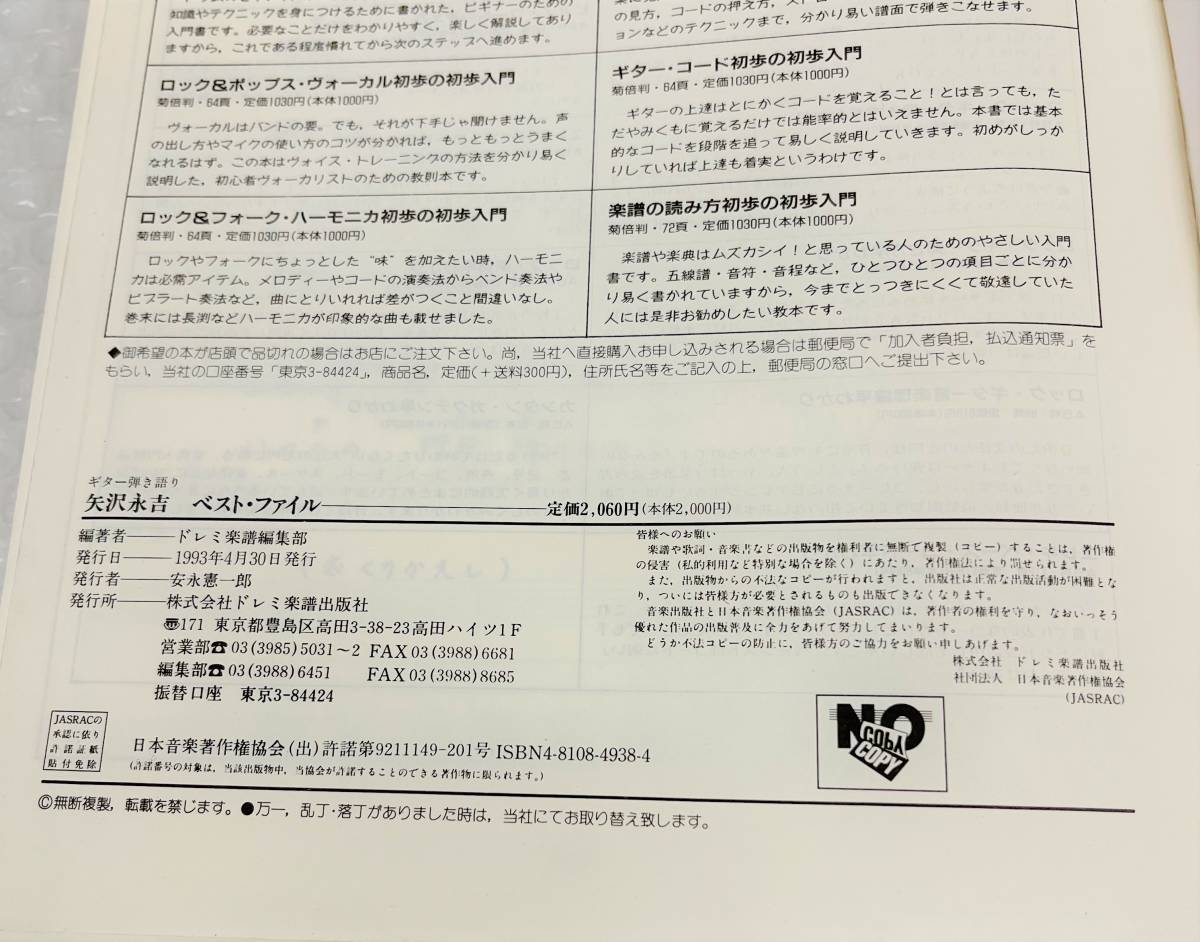 知識やテクニックを身につけるために書かれた，ビギナーのための
入門書です。必要なことだけをわかりやすく，楽しく解説してあり
ますから，これである程度慣れてから次のステップへ進めます。
の見方，コードの押え方，スト
ョンなどのテクニックまで，分かり易い譜面で弾きこなせます。
ロック&ポップス・ヴォーカル初歩の初歩入門
菊倍判・64頁・定価1030円(本体1000円)
ヴォーカルはバンドの要。でも，それが下手じゃ聞けません。声
の出し方やマイクの使い方のコツが分かれば，もっともっとうまく
なれるはず。この本はヴォイス・トレーニングの方法を分かり易く
説明した，初心者ヴォーカリストのための教則本です。
ギター・コード初歩の初歩入門
菊倍判・64頁・定価1030円(本体1000円)
ギターの上達はとにかくコードを覚えること！とは言っても，た
だやみくもに覚えるだけでは能率的とはいえません。本書では基本
的なコードを段階を追って易しく説明していきます。初めがしっか
りしていれば上達も着実というわけです。
ロック&フォーク・ハーモニカ初歩の初歩入門
菊倍判・64頁・定価1030円(本体1000円)
ロックやフォークにちょっとした“味”を加えたい時，ハーモニ
カは必需アイテム。メロディーやコードの演奏法からベンド奏法や
ビブラート奏法など，曲にとりいれれば差がつくこと間違いなし。
巻末には長渕などハーモニカが印象的な曲も載せました。
楽譜の読み方初歩の初歩入門
菊倍判・72頁・定価1030円(本体1000円)
楽譜や楽典はムズカシイ！と思っている人のためのやさしい入門
書です。五線譜・音符・音程など，ひとつひとつの項目ごとに分か
り易く書かれていますから，今までとっつきにくくて敬遠していた
人には是非お勧めしたい教本です。
◆御希望の本が店頭で品切れの場合はお店にご注文下さい。尚，当社へ直接購入お申し込みされる場合は郵便局で「加入者負担，払込通知票」を
もらい，当社の口座番号「東京3-84424」，商品名，定価(＋送料300円)，住所氏名等をご記入の上，郵便局の窓口へご提出下さい。
ギター弾き語り
矢沢永吉 ベスト・ファイル――定価2,060円(本体2,000円)
編著者――ドレミ楽譜編集部
発行日――1993年4月30日発行
発行者――安永憲一郎
発行所――株式会社ドレミ楽譜出版社
〠171 東京都豊島区高田3-38-23高田ハイツ1F
営業部☎03(3985)5031〜2 FAX03(3988)6681
編集部☎03(3988)6451 FAX03(3988)8685
振替口座 東京3-84424
皆様へのお願い
楽譜や歌詞・音楽書などの出版物を権利者に無断で複製（コピー）することは，著作権
の侵害（私的利用など特別な場合を除く）にあたり，著作権法により罰せられます。
また，出版物からの不法なコピーが行われますと，出版社は正常な出版活動が困難とな
り，ついには皆様方が必要とされるものも出版できなくなります。
音楽出版社と日本音楽著作権協会（JASRAC）は，著作者の権利を守り，なおいっそう
優れた作品の出版普及に全力をあげて努力してまいります。
どうか不法コピーの防止に，皆様方のご協力をお願い申しあげます。
株式会社 ドレミ楽譜出版社
社団法人 日本音楽著作権協会
(JASRAC)
JASRACの
承認に依り
許諾証紙
貼付免除
日本音楽著作権協会(出)許諾第9211149-201号 ISBN4-8108-4938-4
(許諾番号の対象は，当該出版物中，当協会が許諾することのできる著作物に限られます。)
NO
COPY
COPY
©無断複製，転載を禁じます。●万一，乱丁・落丁がありました時は，当社にてお取り替え致します。